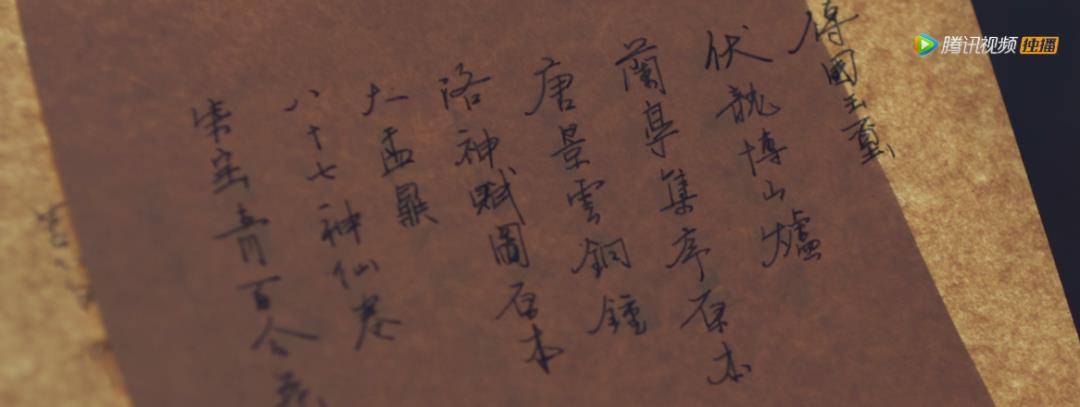 傳國玉璽
伏龍博山爐
蘭亭集序原本
唐景雲銅鍾
洛神賦圖原本
大盂鼎
八十七神仙卷
柴窑青百合花
腾讯视频 独播